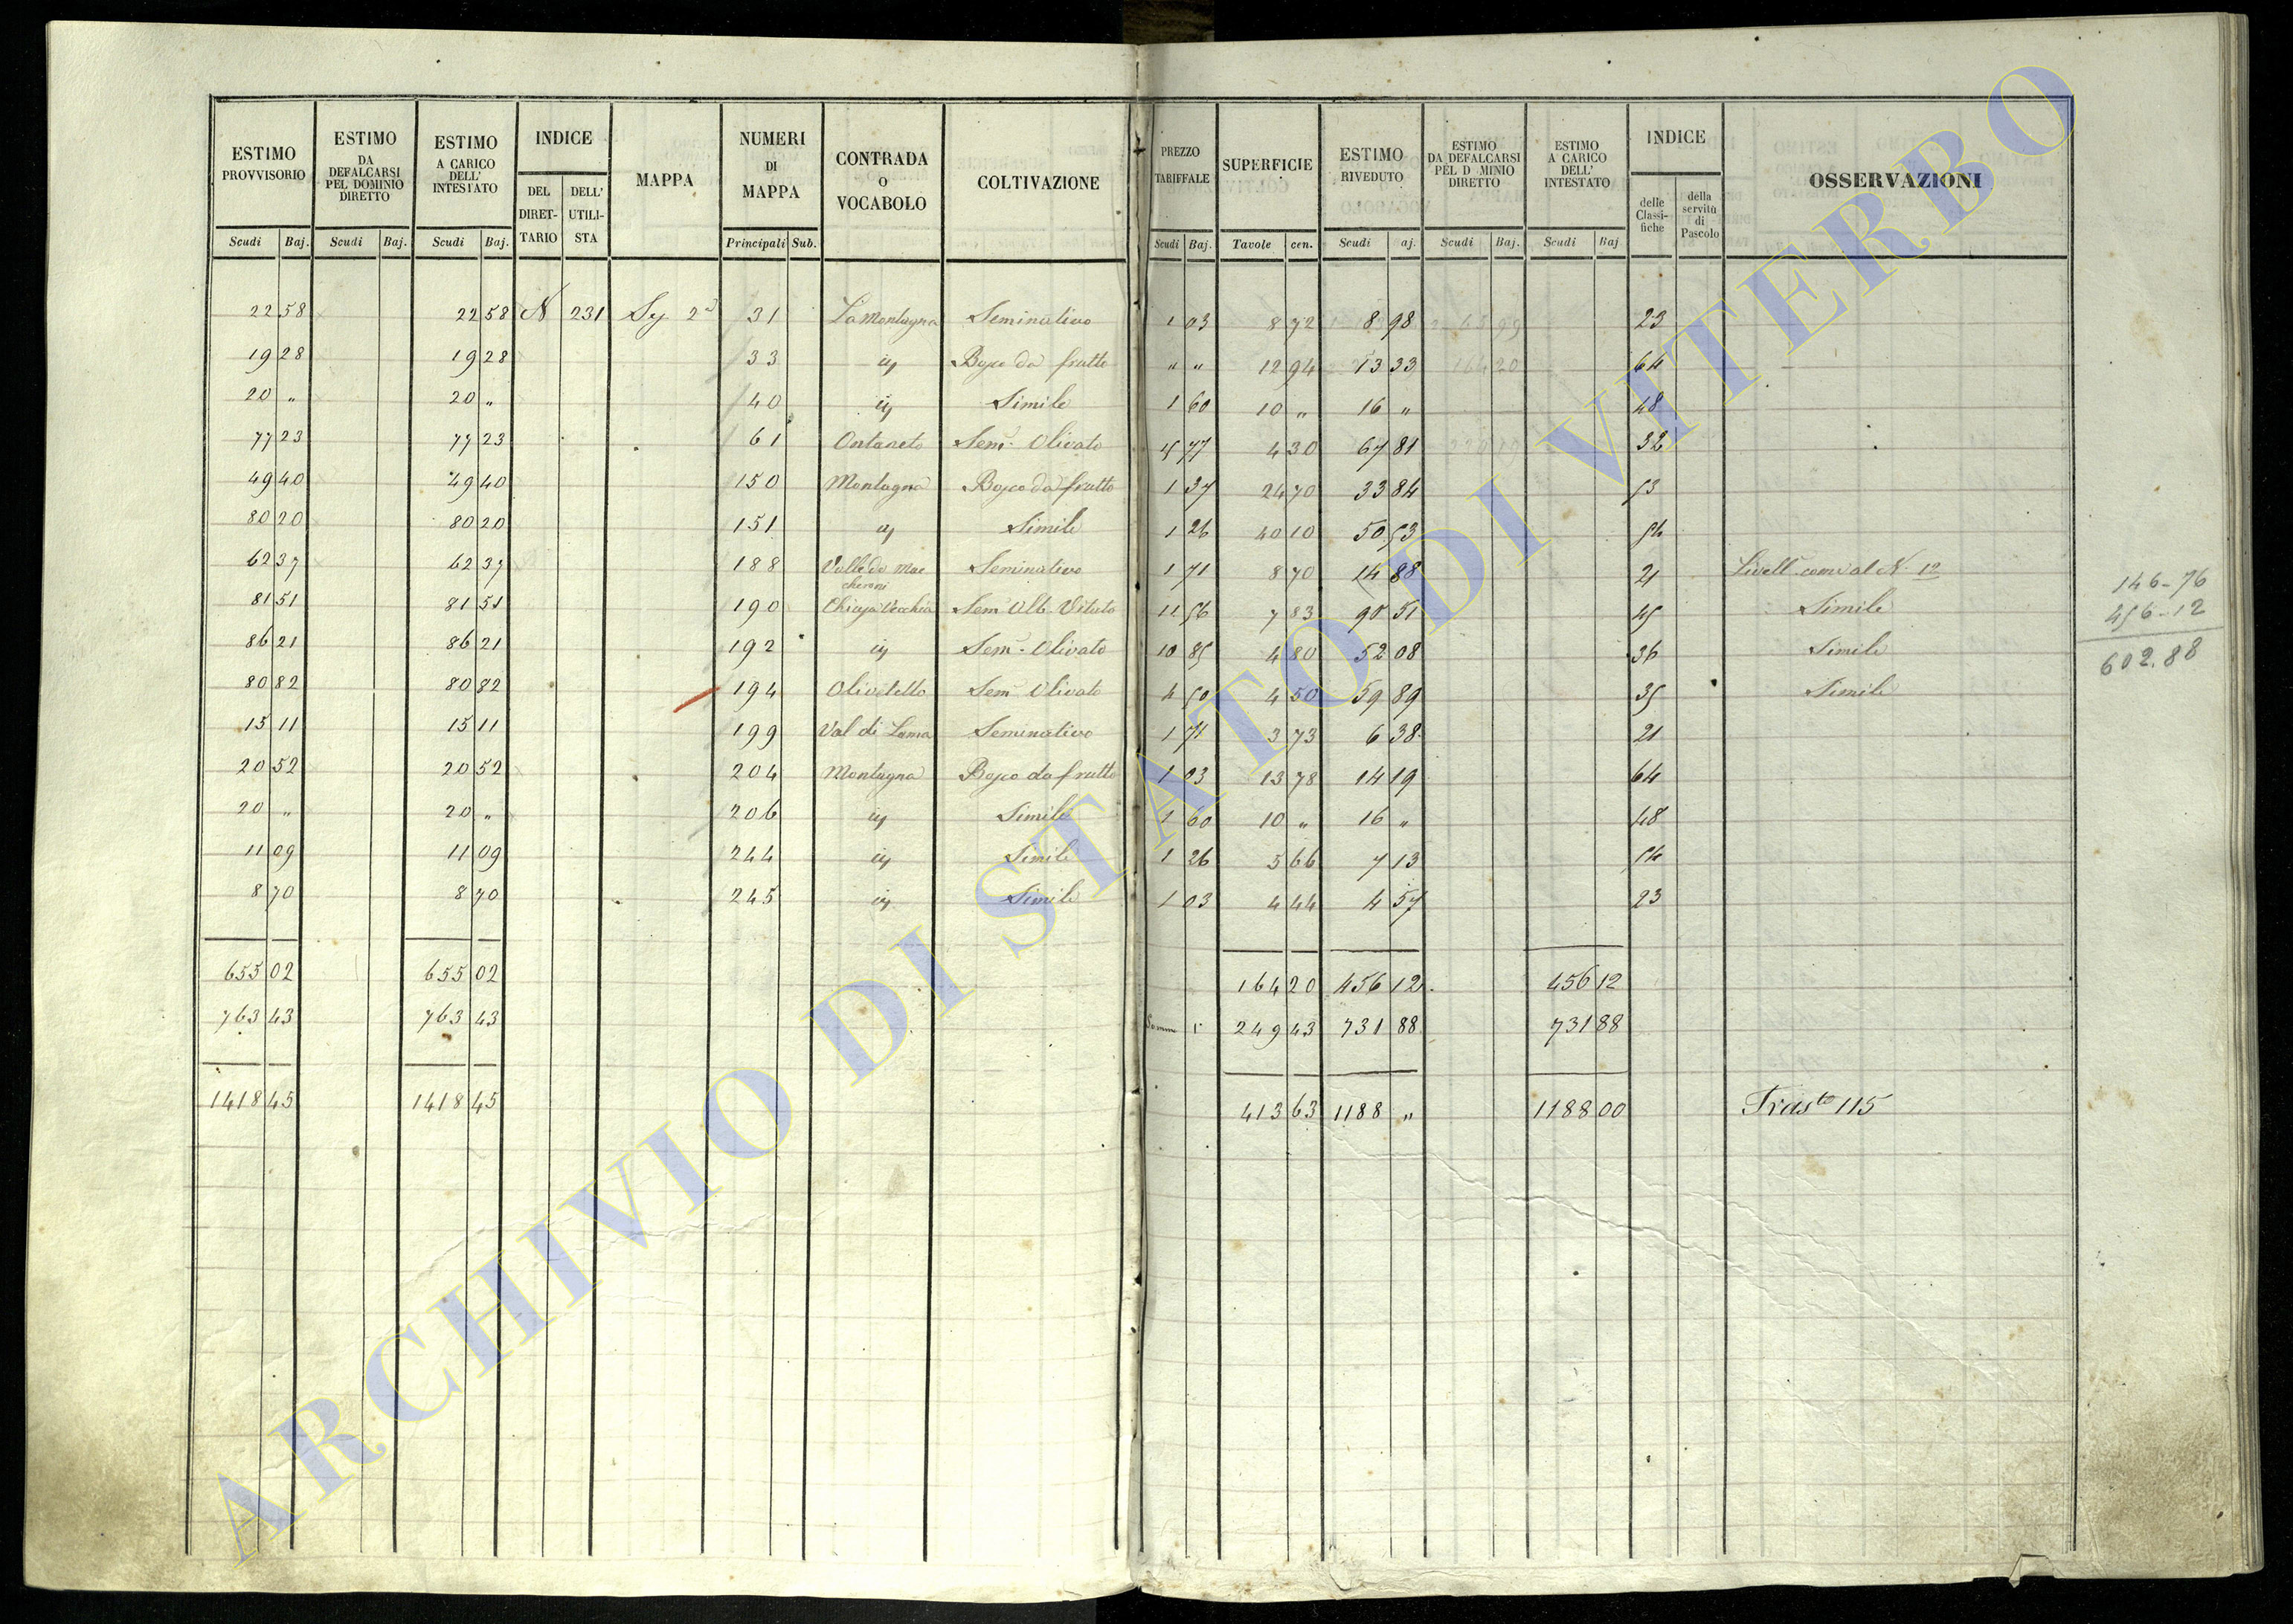 ESTIMO PROVVISORIO | ESTIMO DA DEFALCARSI PEL DOMINIO DIRETTO | ESTIMO A CARICO DELL' INTESTATO | INDICE | MAPPA | NUMERI DI MAPPA | CONTRADA O VOCABOLO | COLTIVAZIONE | PREZZO TARIFFALE | SUPERFICIE | ESTIMO RIVEDUTO | ESTIMO DA DEFALCARSI PEL D MINIO DIRETTO | ESTIMO A CARICO DELL' INTESTATO | INDICE | OSSERVAZIONI
DEL DIRET-TARIO | DELL' UTILI-STA | delle Classi-fiche | della servitù di Pascolo
Scudi | Baj. | Scudi | Baj. | Scudi | Baj. | Principali | Sub. | Scudi | Baj. | Tavole | cen. | Scudi | aj. | Scudi | Baj. | Scudi | Baj
22 58 | 22 58 | N 231 | 2ª | 31 | La Montagna | Seminativo | 1 03 | 8 72 | 8 98 | 23
19 28 | 19 28 | 33 | Bosco da frutto | " " | 12 94 | 13 33 | 64
20 " | 20 " | 40 | Simile | 1 60 | 10 " | 16 " | 48
77 23 | 77 23 | 61 | Ontaneto | Sem. Olivato | 77 | 4 30 | 67 81 | 32
49 40 | 49 40 | 150 | Montagna | Bosco da frutto | 1 37 | 24 70 | 33 84 | 53
80 20 | 80 20 | 151 | Simile | 1 26 | 40 10 | 50 53 | 54
62 37 | 62 37 | 188 | Valle da Mac cheroni | Seminativo | 1 71 | 8 70 | 14 88 | 21 | Livell. come al N. 12
81 51 | 81 51 | 190 | Vecchia | Sem. Alb. Vitato | 11 56 | 7 83 | 90 51 | 45 | Simile
86 21 | 86 21 | 192 | Sem. Olivato | 10 85 | 4 80 | 52 08 | 36 | Simile
80 82 | 80 82 | 194 | Olivetello | Sem. Olivato | 50 | 4 50 | 59 89 | 35 | Simile
15 11 | 15 11 | 199 | Val di Lama | Seminativo | 1 71 | 3 73 | 6 38 | 21
20 52 | 20 52 | 204 | Montagna | Bosco da frutto | 1 03 | 13 78 | 14 19 | 64
20 " | 20 " | 206 | Simile | 1 60 | 10 " | 16 " | 48
11 09 | 11 09 | 244 | Simile | 1 26 | 5 66 | 7 13 | 54
8 70 | 8 70 | 245 | Simile | 1 03 | 4 44 | 4 57 | 23
655 02 | 655 02 | 164 20 | 456 12 | 456 12
763 43 | 763 43 | 249 43 | 731 88 | 731 88
1418 45 | 1418 45 | 413 63 | 1188 " | 1188 00 | Trasto 115
146-76
456-12
602.88
ARCHIVIO DI STATO DI VITERBO